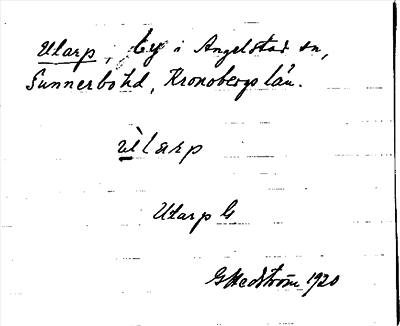 Utarp, by i Angelstad sn,
Sunnerbo hd, Kronobergs län.
ùtarp
Utarp G
G Hedström 1920